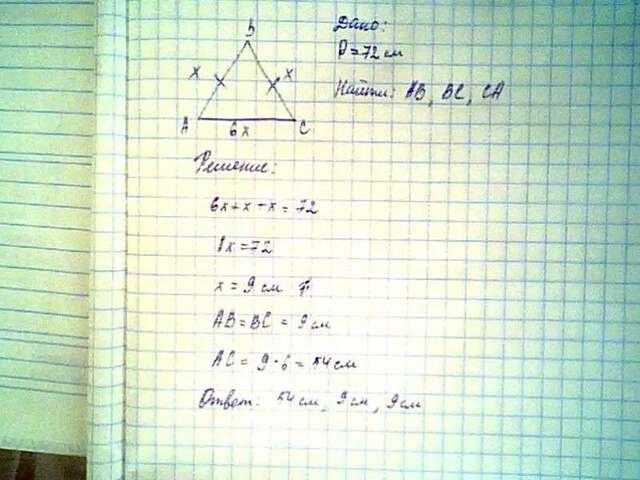 Дано:
P = 72 см
Найти: AB, BC, CA
B
x
x
A
6x
C
Решение:
6x+x+x=72
8x=72
x = 9 см
AB=BC = 9 см
AC = 9·6 = 54 см
Ответ: 54 см, 9 см, 9 см